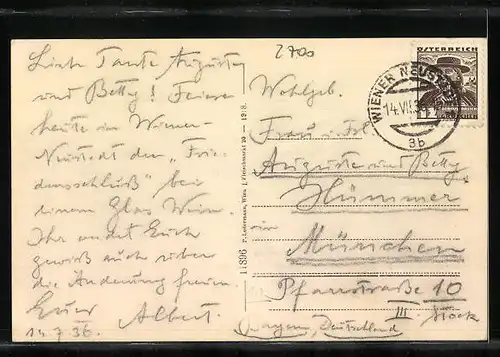 2700
Liebe Tante Auguste
und Betty! Feiern
heute im Wiener
Neustadt den „Frie-
densschluß“ bei
einem Glas Wein.
Ihr werdet Euch
gewiß auch über
die Änderung freuen.
Euer Albert.
14.7.36.
P. Ledermann, Wien I, Fleischmarkt 20 - 1928.
11896
ÖSTERREICH
GROSCHEN
WIENER NEUSTADT
14.VII.3
3b
Wohlgeb.
Frau u. Frl.
Auguste und Betty
Hümmer
in
München
Pfarrstraße 10
III Stock
Bayern, Deutschland